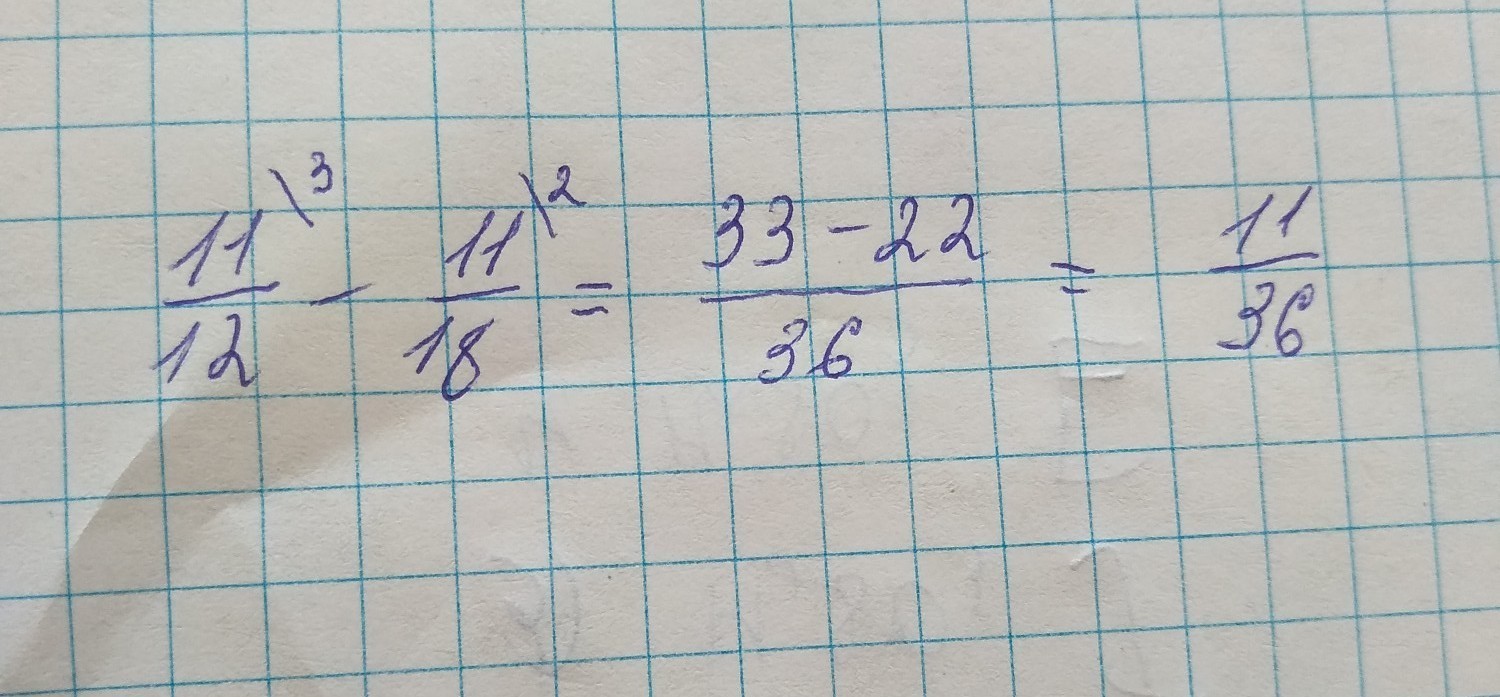 11/12 \3 - 11/18 \2 = (33 - 22)/36 = 11/36